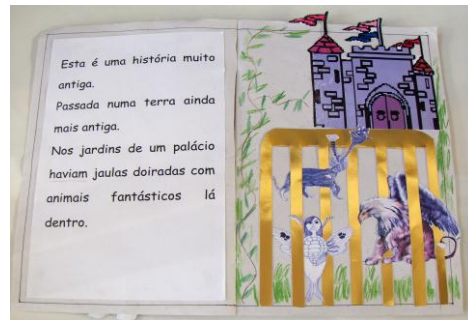 Esta é uma história muito
antiga.
Passada numa terra ainda
mais antiga.
Nos jardins de um palácio
haviam jaulas doiradas com
animais fantásticos lá
dentro.